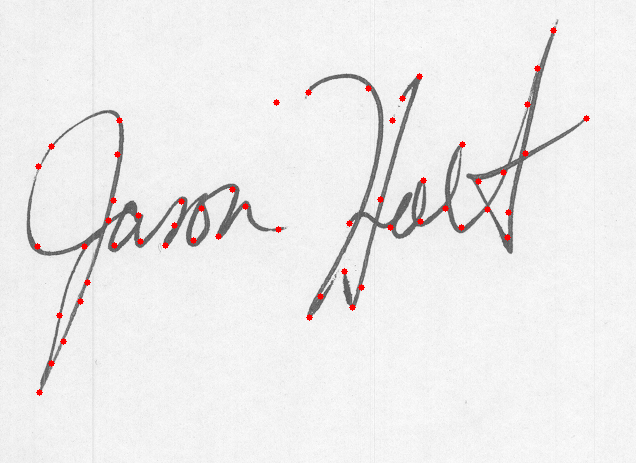 Jason Holt